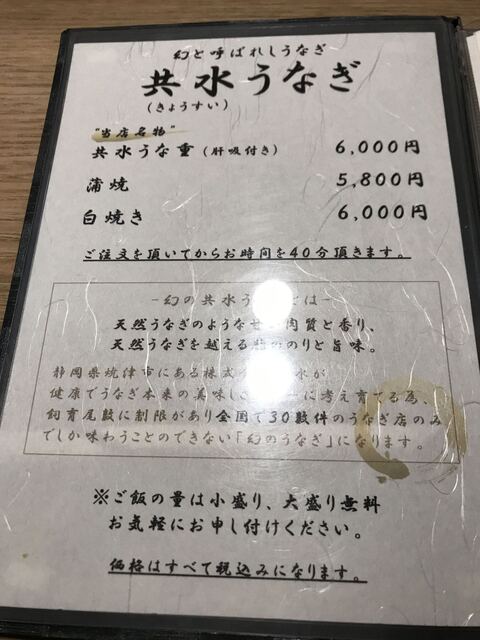 幻と呼ばれしうなぎ
共水うなぎ
(きょうすい)
"当店名物"
共水うな重(肝吸付き) 6,000円
蒲焼 5,800円
白焼き 6,000円
ご注文を頂いてからお時間を40分頂きます。
-幻の共水う とは-
天然うなぎのような 肉質と香り、
天然うなぎを越える脂ののりと旨味。
静岡県焼津市にある株式 水が
健康でうなぎ本来の美味し に考え育てる為、
飼育尾数に制限があり全国で30数件のうなぎ店のみ
でしか味わうことのできない「幻のうなぎ」になります。
※ご飯の量は小盛り、大盛り無料
お気軽にお申し付けください。
価格はすべて税込みになります。